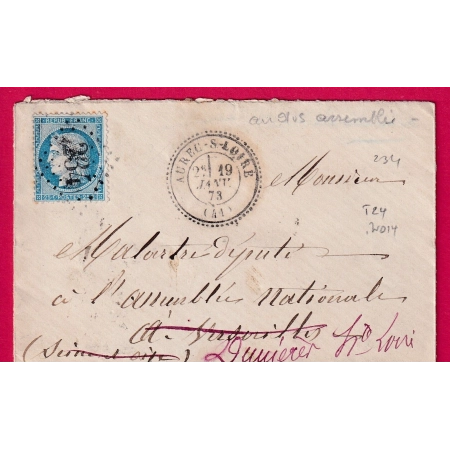 au dos assemblée
REPUB. FRANC.
234
AUREC-S-LOIRE
2E 19
JANV.
73
(41)
Monsieur
234
T24
Malartre député
à l'assemblée Nationale
à Versailles
(Seine et Oise) Dunières Hte Loire